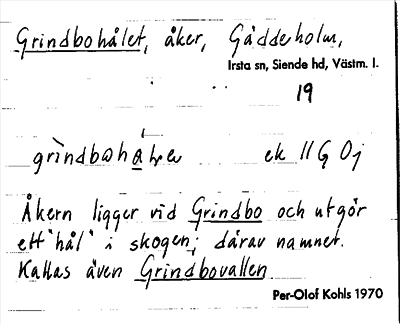 Grindbohålet, åker, Gäddeholm,
Irsta sn, Siende hd, Västm. l.
19
ek 11G 0j
Åkern ligger vid Grindbo och utgör
ett "hål" i skogen; därav namnet.
Kallas även Grindbovallen
Per-Olof Kohls 1970